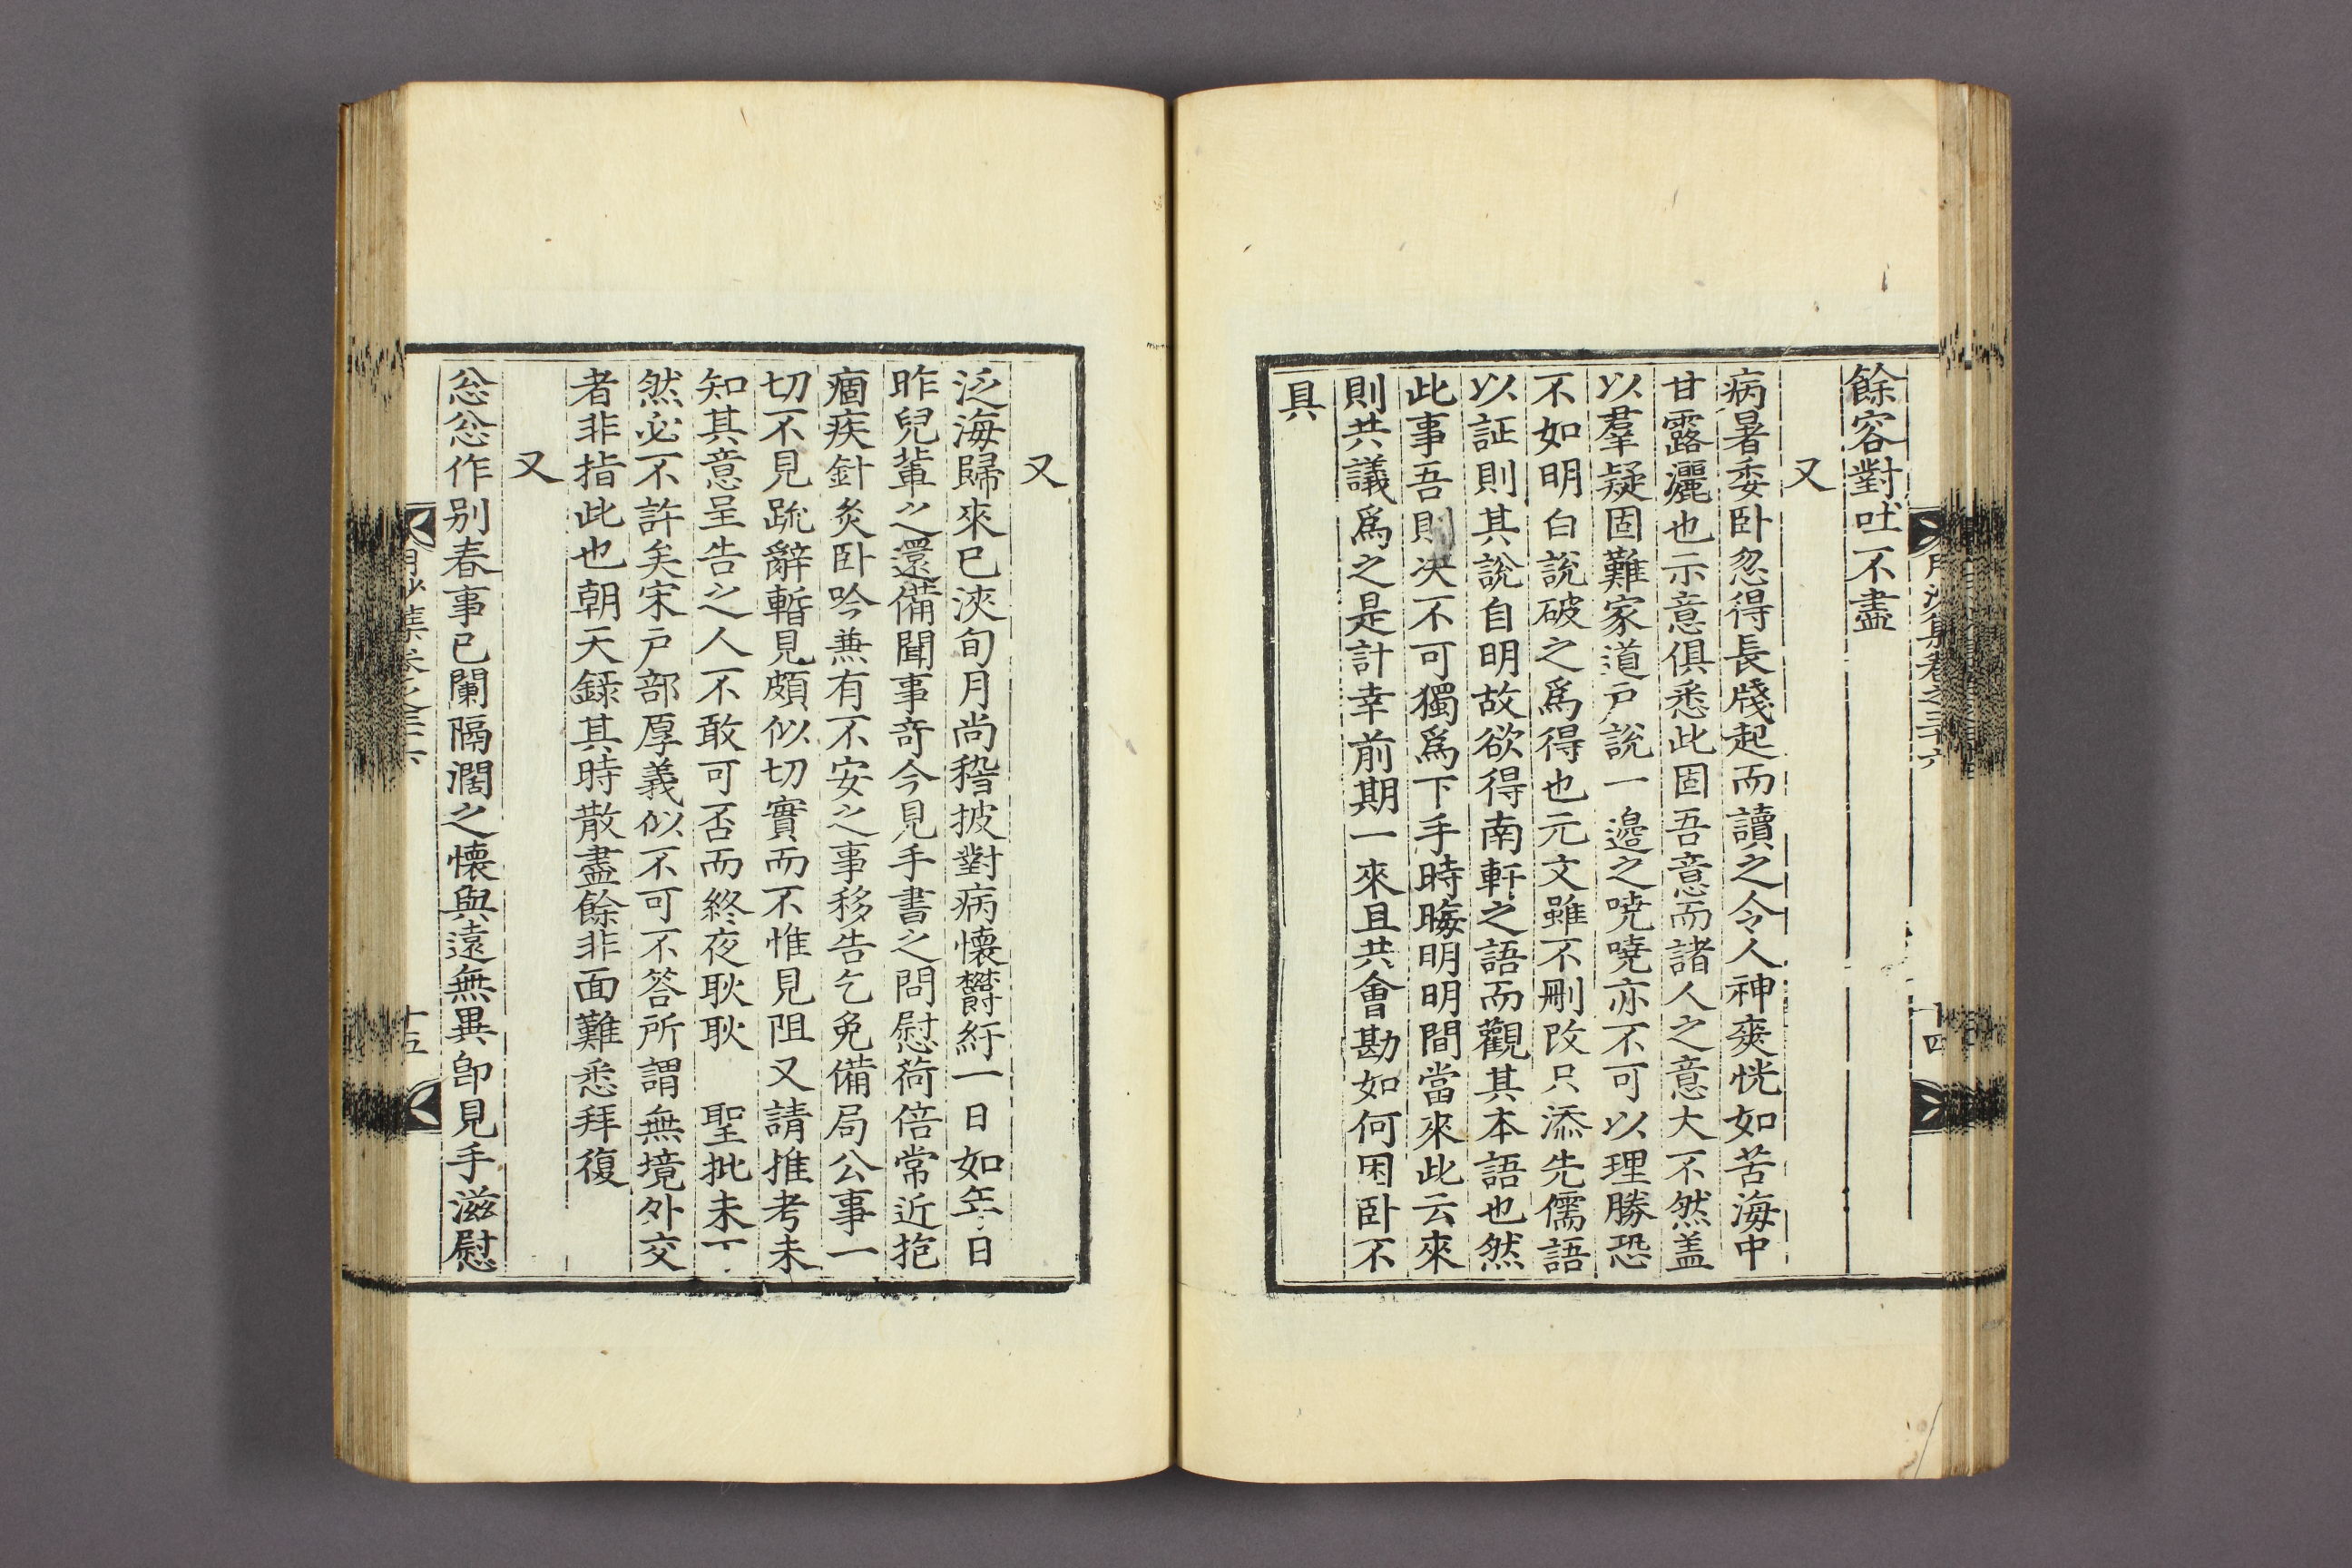 月沙集卷之三十六
十四
餘容對吐不盡
又
病暑委卧忽得長牋起而讀之令人神爽恍如苦海中
甘露灑也示意俱悉此固吾意而諸人之意大不然盖
以羣疑固難家道戶說一邊之嘵嘵亦不可以理勝恐
不如明白說破之爲得也元文雖不刪改只添先儒語
以証則其說自明故欲得南軒之語而觀其本語也然
此事吾則决不可獨爲下手時晦明明間當來此云來
則共議爲之是計幸前期一來且共會勘如何困卧不
具
又
泛海歸來已浹旬月尚稽披對病懷欝紆一日如年日
昨兒輩之還備聞事竒今見手書之問慰荷倍常近抱
痼疾針灸卧吟兼有不安之事移告乞免備局公事一
切不見䟽辭暫見頗似切實而不惟見阻又請推考未
知其意呈告之人不敢可否而終夜耿耿　聖批未下
然必不許矣宋戶部厚義似不可不答所謂無境外交
者非指此也朝天錄其時散盡餘非面難悉拜復
又
忩忩作别春事已闌隔濶之懷與遠無異卽見手滋慰
月沙集卷之三十六
十五